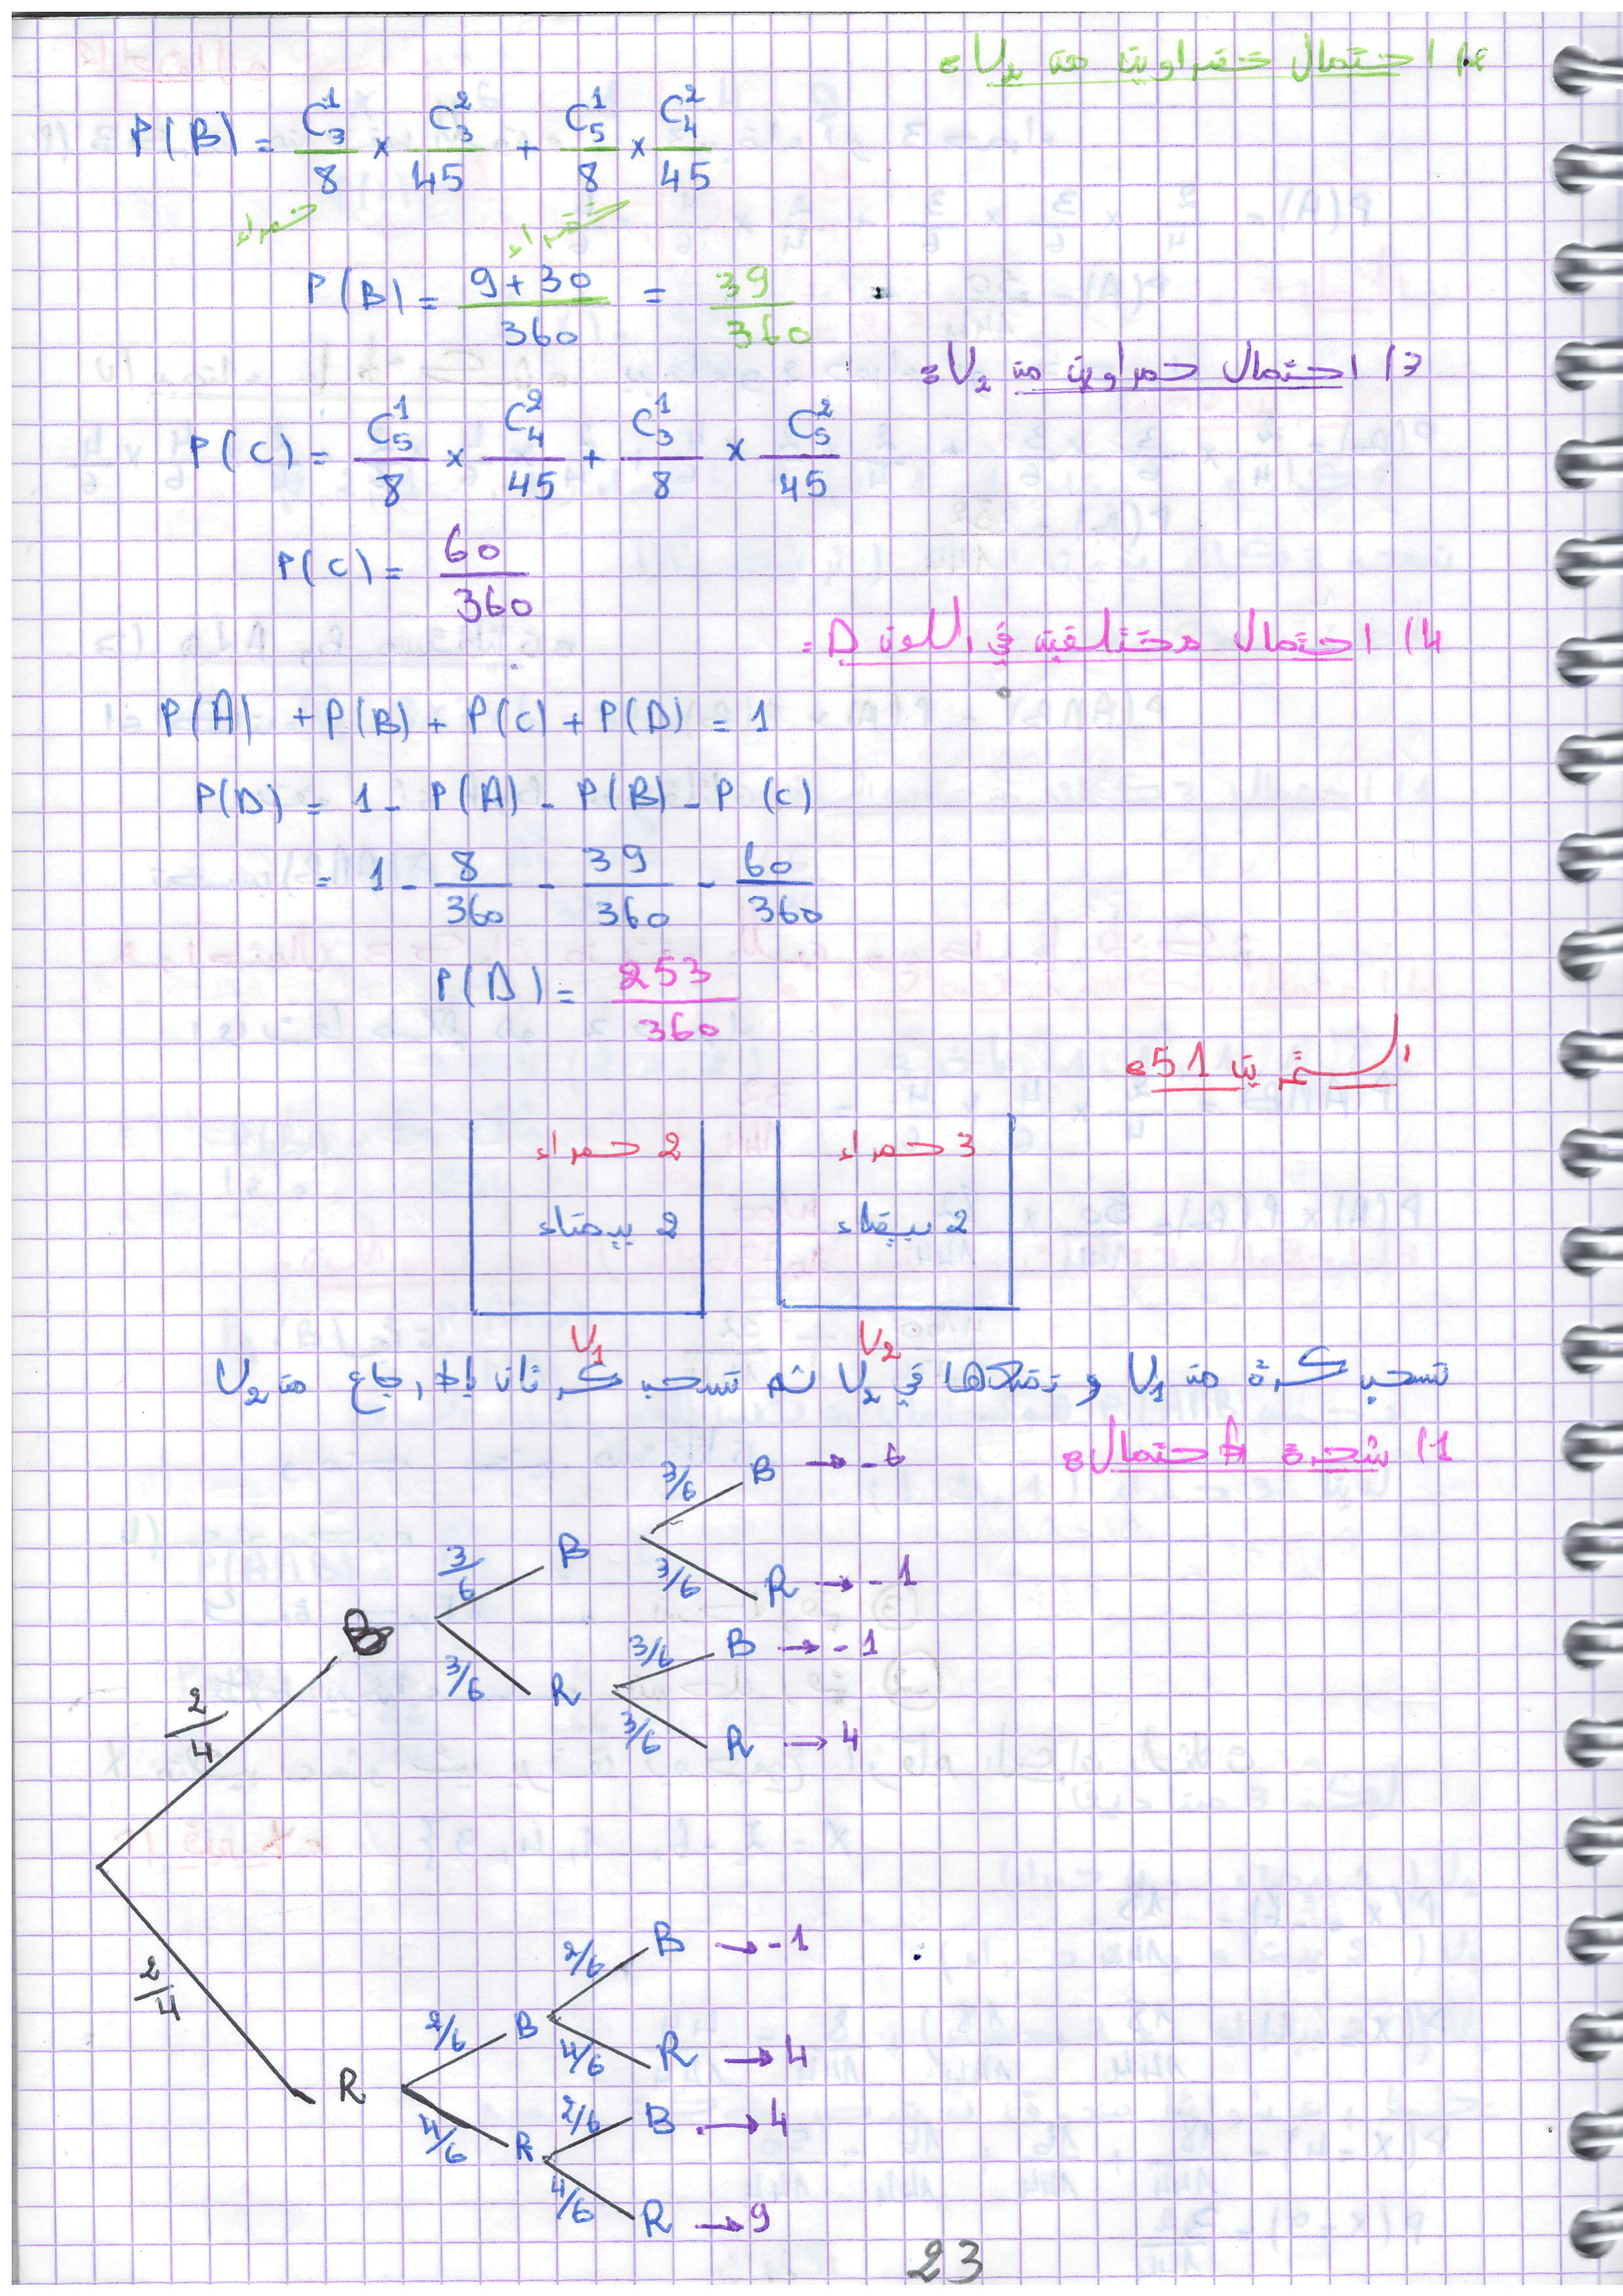 2) احتمال خضراوين من U₂ :
P(B) = C₃¹/8 × C₃²/45 + C₅¹/8 × C₄²/45
حمراء خضراء
P(B) = (9+30)/360 = 39/360
3) احتمال حمراوين من U₂ :
P(C) = C₅¹/8 × C₄²/45 + C₃¹/8 × C₅²/45
P(C) = 60/360
4) احتمال مختلفين في اللون D :
P(A) + P(B) + P(C) + P(D) = 1
P(D) = 1 - P(A) - P(B) - P(C)
= 1 - 8/360 - 39/360 - 60/360
P(D) = 253/360
التمرين 51 :
2 حمراء 3 حمراء
2 بيضاء 2 بيضاء
U₁ U₂
نسحب كرة من U₁ و نضعها في U₂ ثم نسحب كرتان بإرجاع من U₂
1) شجرة الاحتمال :
3/6 B → -6
3/6 B
3/6 R → -1
2/4 B
3/6 B → -1
3/6 R
3/6 R → 4
2/6 B → -1
2/6 B
4/6 R → 4
2/4 R
2/6 B → 4
4/6 R
4/6 R → 9
23